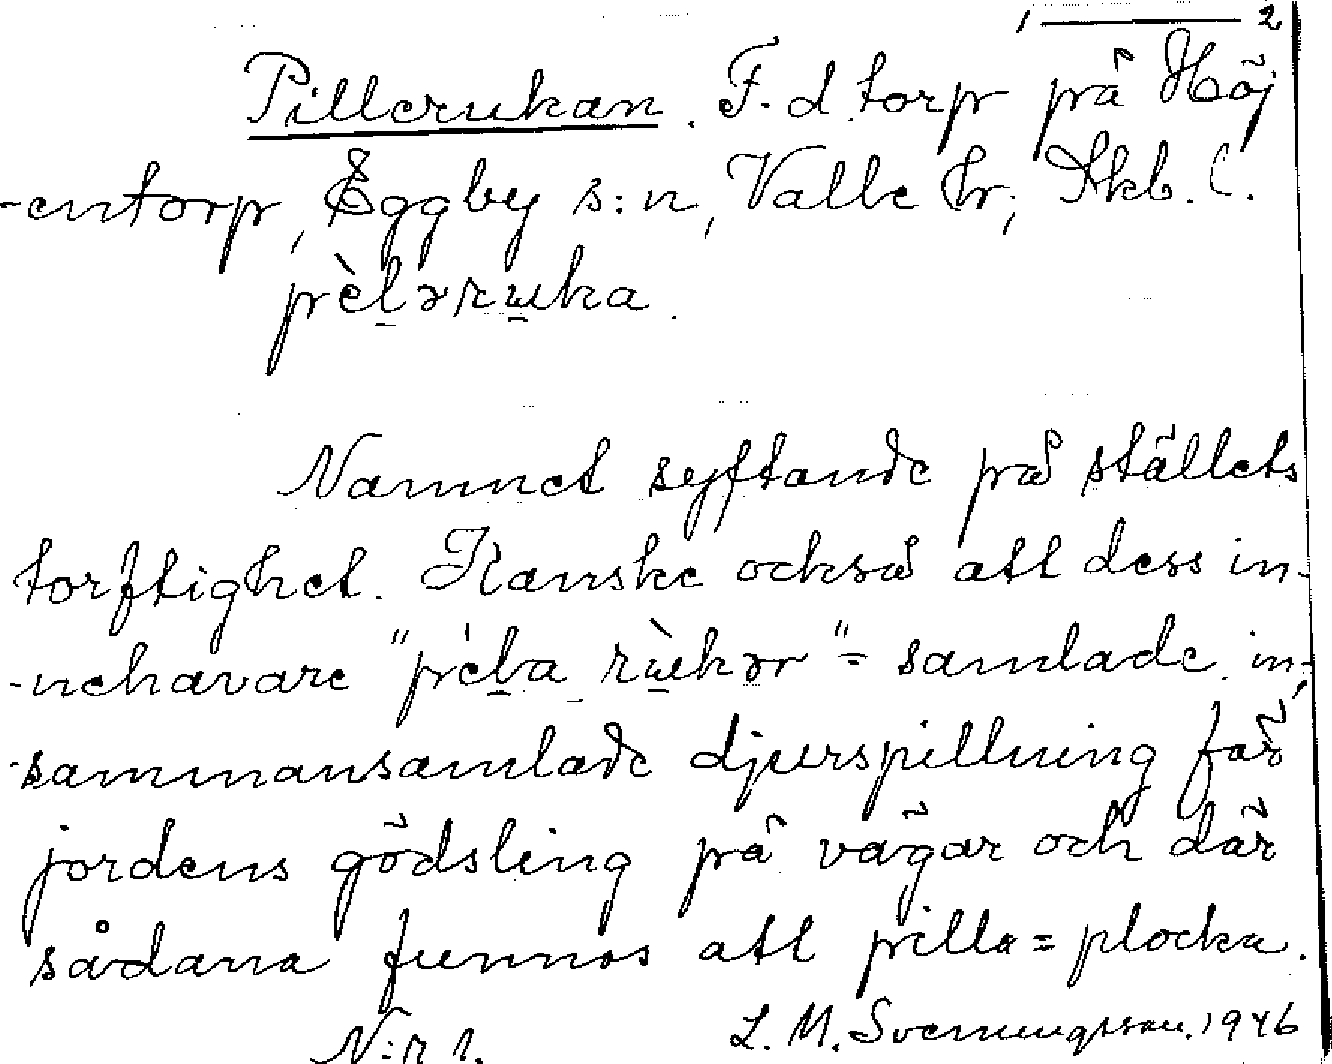 1 — 2
Pillerukan. F. d. torp på Höj
-entorp, Eggby s:n, Valle hr, Skb. l.
pèləruka.
Namnet syftande på ställets
torftighet. Kanske också att dess in-
-nehavare "pela rùkər" = samlade in,
-sammansamlade djurspillning för
jordens gödsling på vägar och där
sådana funnos att pilla = plocka.
N:r 1. L. M. Svenungsson. 1946